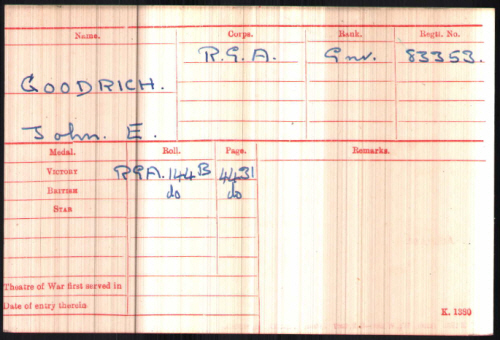 Name. Corps. Rank. Regtl. No.
R.G.A. Gnr. 83353.
GOODRICH.
John. E.
Medal. Roll. Page. Remarks.
VICTORY RGA.144B 4431
BRITISH do do
STAR
Theatre of War first served in
Date of entry therein
K. 1380